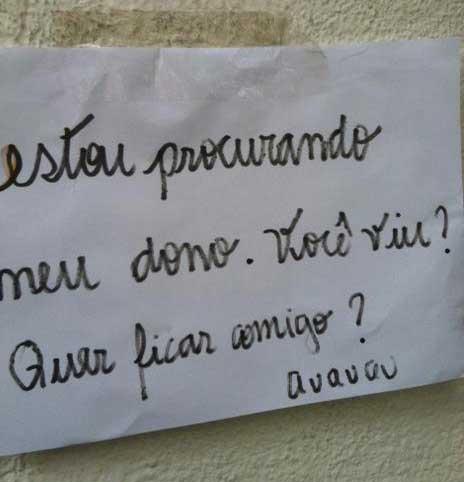 estou procurando
meu dono. Você viu?
Quer ficar comigo?
auauau